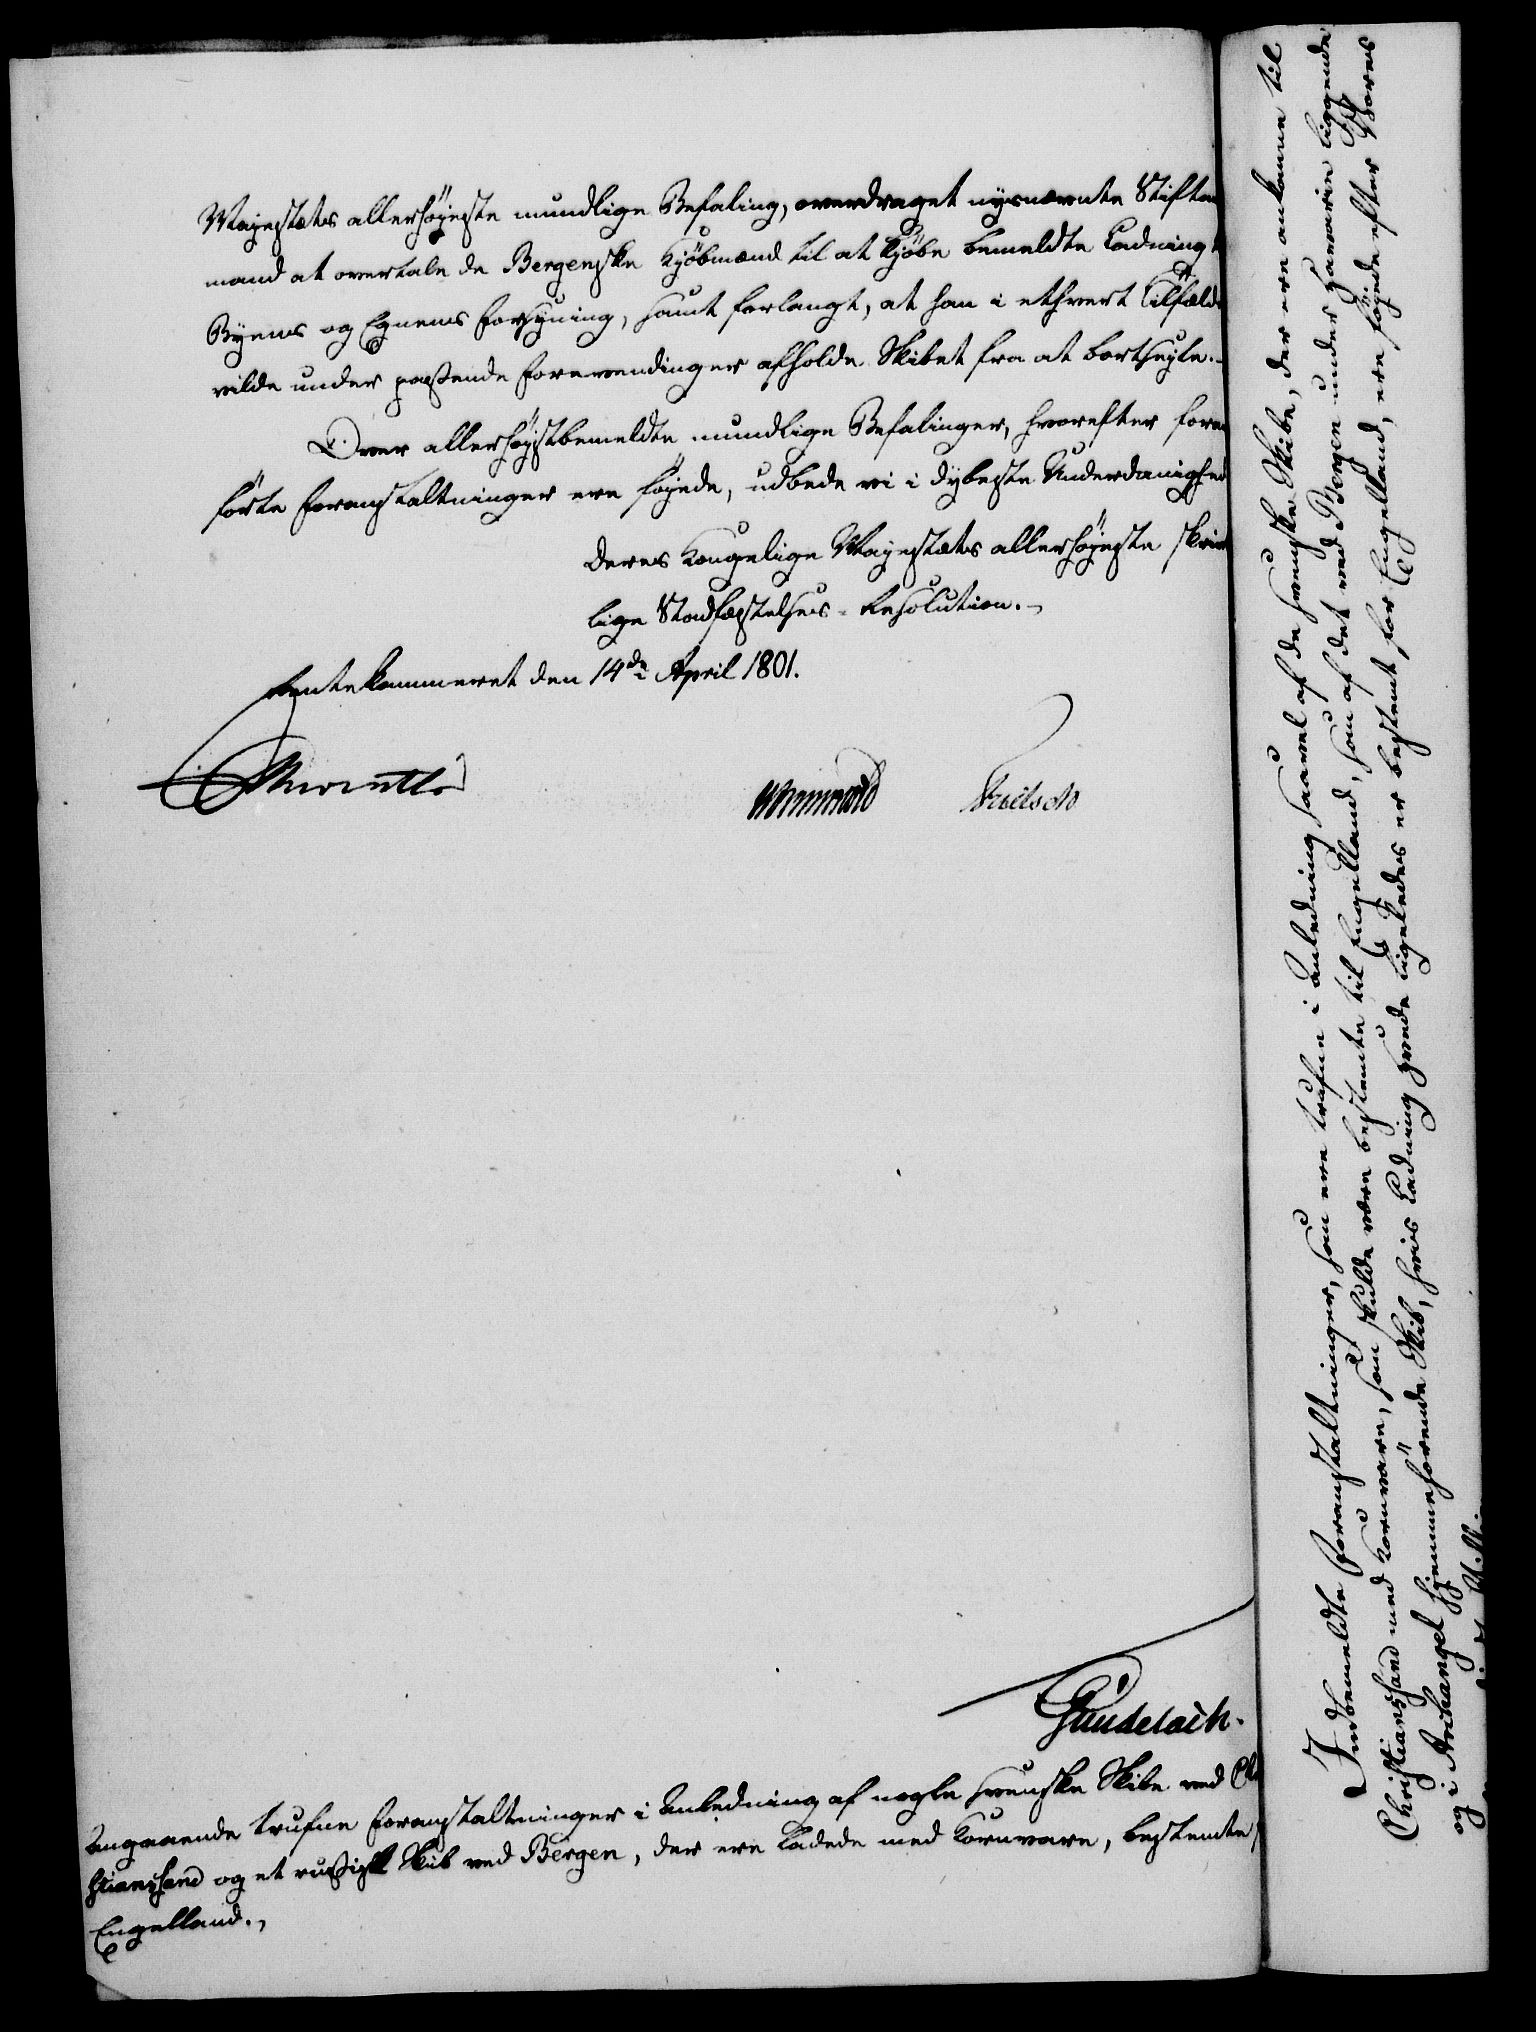 Mayestæts allerhöyeste mundlige Befaling, overdraget nysnævnte Stiftam
mand at overtale de Bergenske Kjöbmænd til at kjöbe bemeldte Ladning t
Byens og Egnens Forsyning, samt forlangt, at han i ethvert Tilfælde
vilde under passende Forevendinger afholde Skibet fra at bortseyle.-
Over allerhöystbemeldte mundlige Befalinger, hvorefter foran
förte Foranstaltninger ere föyede, udbede vi i dybeste Underdanighed
Deres Kongelige Mayestæts allerhöyeste skrivt
lige Stadfæstelses-Resolution.-
Rentekammeret den 14de April 1801.
Gundelach.
Angaaende trufne Foranstaltninger i Anledning af nogle svenske Skibe ved Chri
stianssand og et russisk Skib ved Bergen, der ere ladede med Kornvare, bestemte
Engelland.-
Indbemeldte Foranstaltninger, som ere trufne i Anledning saavel af de svenske Skibe, der ere ankomne til
Christianssand med Kornvare, som skulde være bestemte til Engelland, som af det ved Bergen under Havarie liggende
og i Archangel hjemmehörende Skib, hvis Ladning Hvede ligeledes er bestemt for Engelland, ere föyede efter Vores